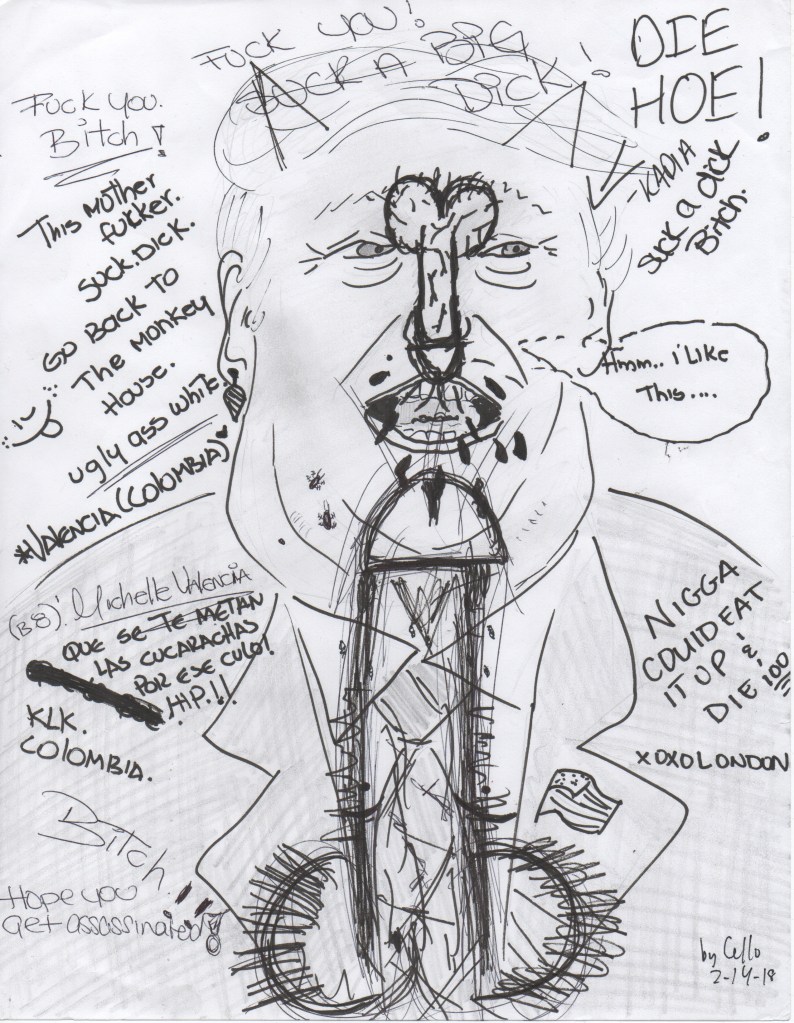 FUCK YOU!
SUCK A BIG
DICK!
DIE
HOE!
-KADIA
Fuck you.
Bitch!
This Mother
fukker.
SUCK.DICK.
GO BACK TO
The Monkey
House.
ugly ass white
*Valencia (COLOMBIA)
SUCK a dick
Bitch.
Hmm.. i Like
This....
(B8): Michelle Valencia
QUE SE TE METAN
LAS CUCARACHAS
POR ESE CULO!
H.P!!
KLK.
COLOMBIA.
NIGGA
COULD EAT
IT UP &
DIE 100
XOXO LONDON
Bitch
Hope you
get assassinated!
by Cello
2-14-18